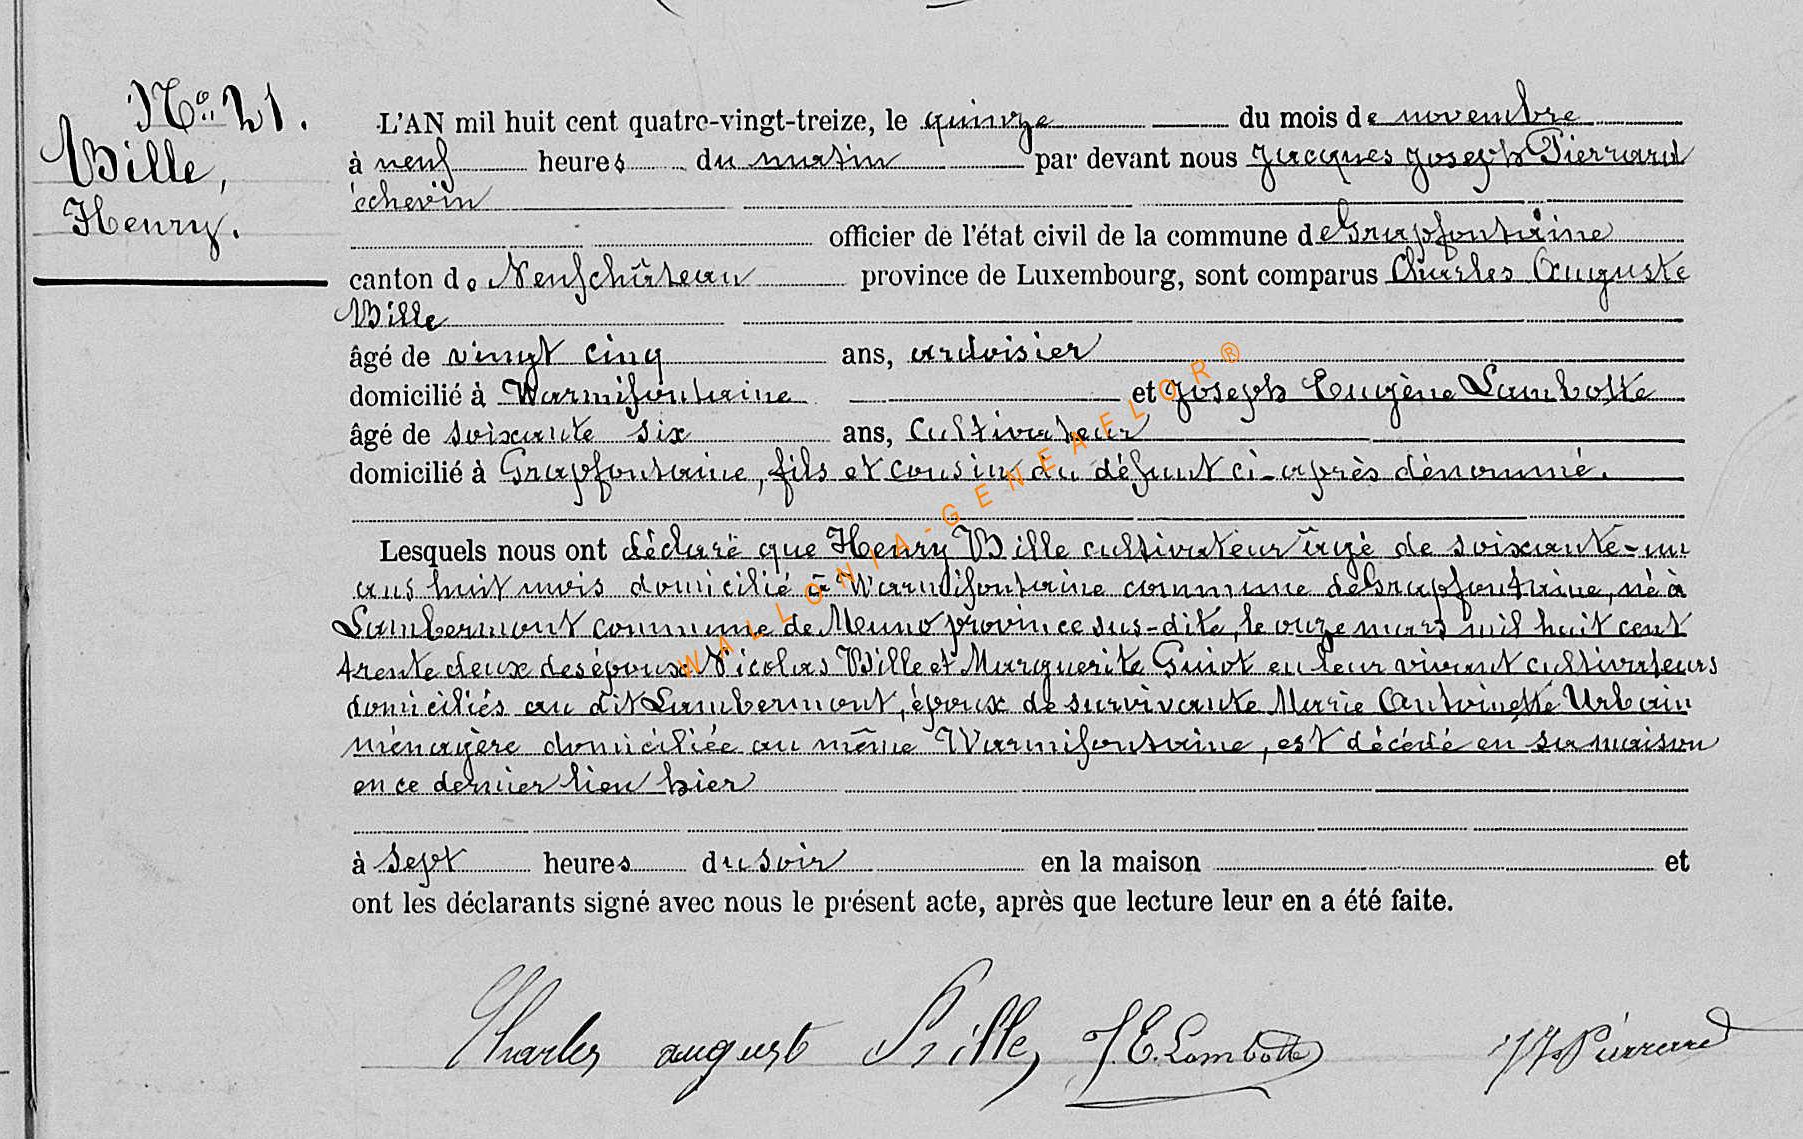 No 21.
Bille,
Henry.
L'AN mil huit cent quatre-vingt-treize, le quinze du mois de novembre
à neuf heures du matin par devant nous Jacques Joseph Pierrard
échevin
officier de l'état civil de la commune de Grapfontaine
canton de Neufchâteau province de Luxembourg, sont comparus Charles Auguste
Bille
âgé de vingt cinq ans, ardoisier
domicilié à Warmifontaine et Joseph Eugène Lambotte
âgé de soixante six ans, cultivateur
domicilié à Grapfontaine, fils et cousin du défunt ci-après dénommé.
Lesquels nous ont déclaré que Henry Bille cultivateur âgé de soixante-un
ans huit mois domicilié à Warmifontaine commune de Grapfontaine, né à
Lambermont commune de Muno province sus-dite, le onze mars mil huit cent
trente deux des époux Nicolas Bille et Marguerite Guiot en leur vivant cultivateurs
domiciliés au dit Lambermont, époux de survivante Marie Antoinette Urbain
ménagère domiciliée au même Warmifontaine, est décédé en sa maison
en ce dernier lieu hier
à sept heures du soir en la maison et
ont les déclarants signé avec nous le présent acte, après que lecture leur en a été faite.
Charles auguste Bille, J. E. Lambotte JJ Pierrard
WALLONIA-GENEAFLOR®